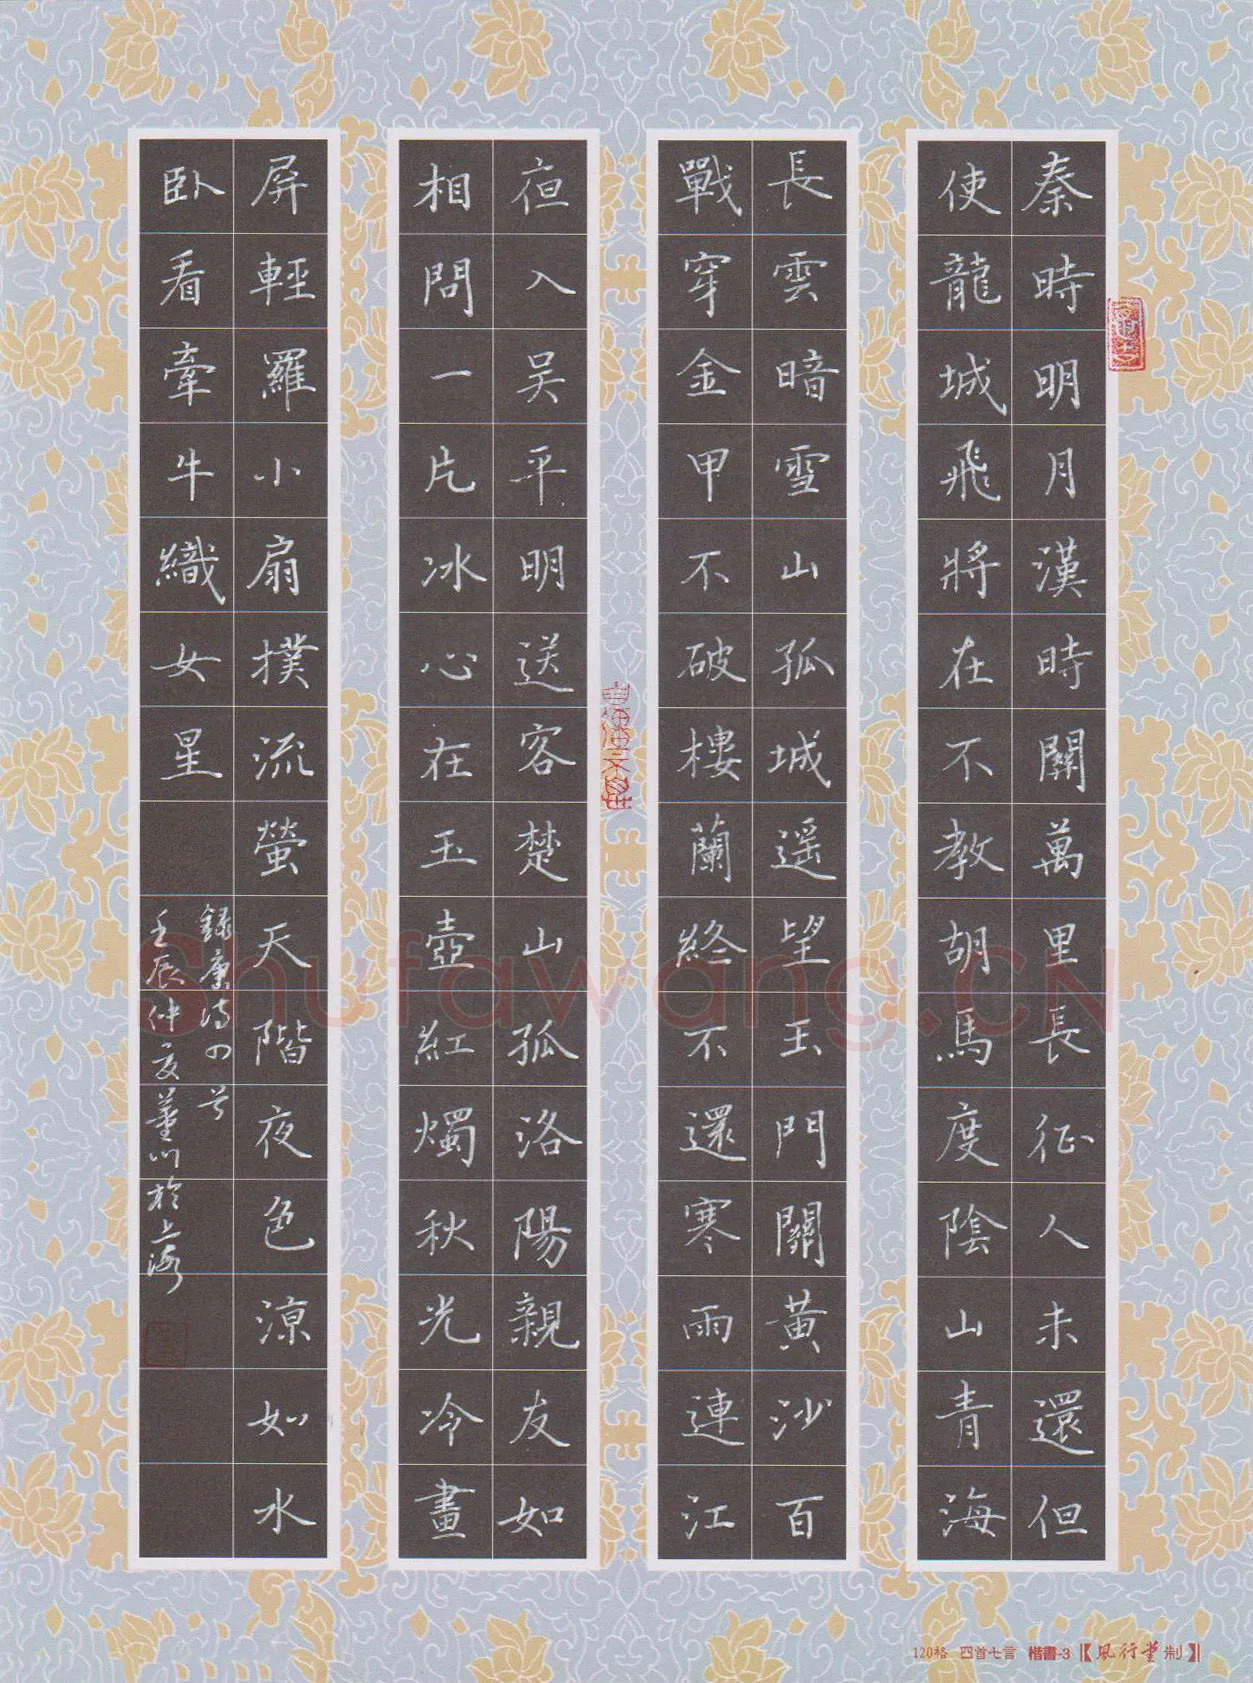 秦時明月漢時關萬里長征人未還但
使龍城飛將在不教胡馬度陰山青海
長雲暗雪山孤城遥望玉門關黃沙百
戰穿金甲不破樓蘭終不還寒雨連江
夜入吴平明送客楚山孤洛陽親友如
相問一片冰心在玉壺紅燭秋光冷畫
屏輕羅小扇撲流螢天階夜色涼如水
卧看牽牛織女星
錄唐詩四首
壬辰仲夏董川於上海
Shufawang.CN
120格 四首七言 楷書-3 【風行堂制】